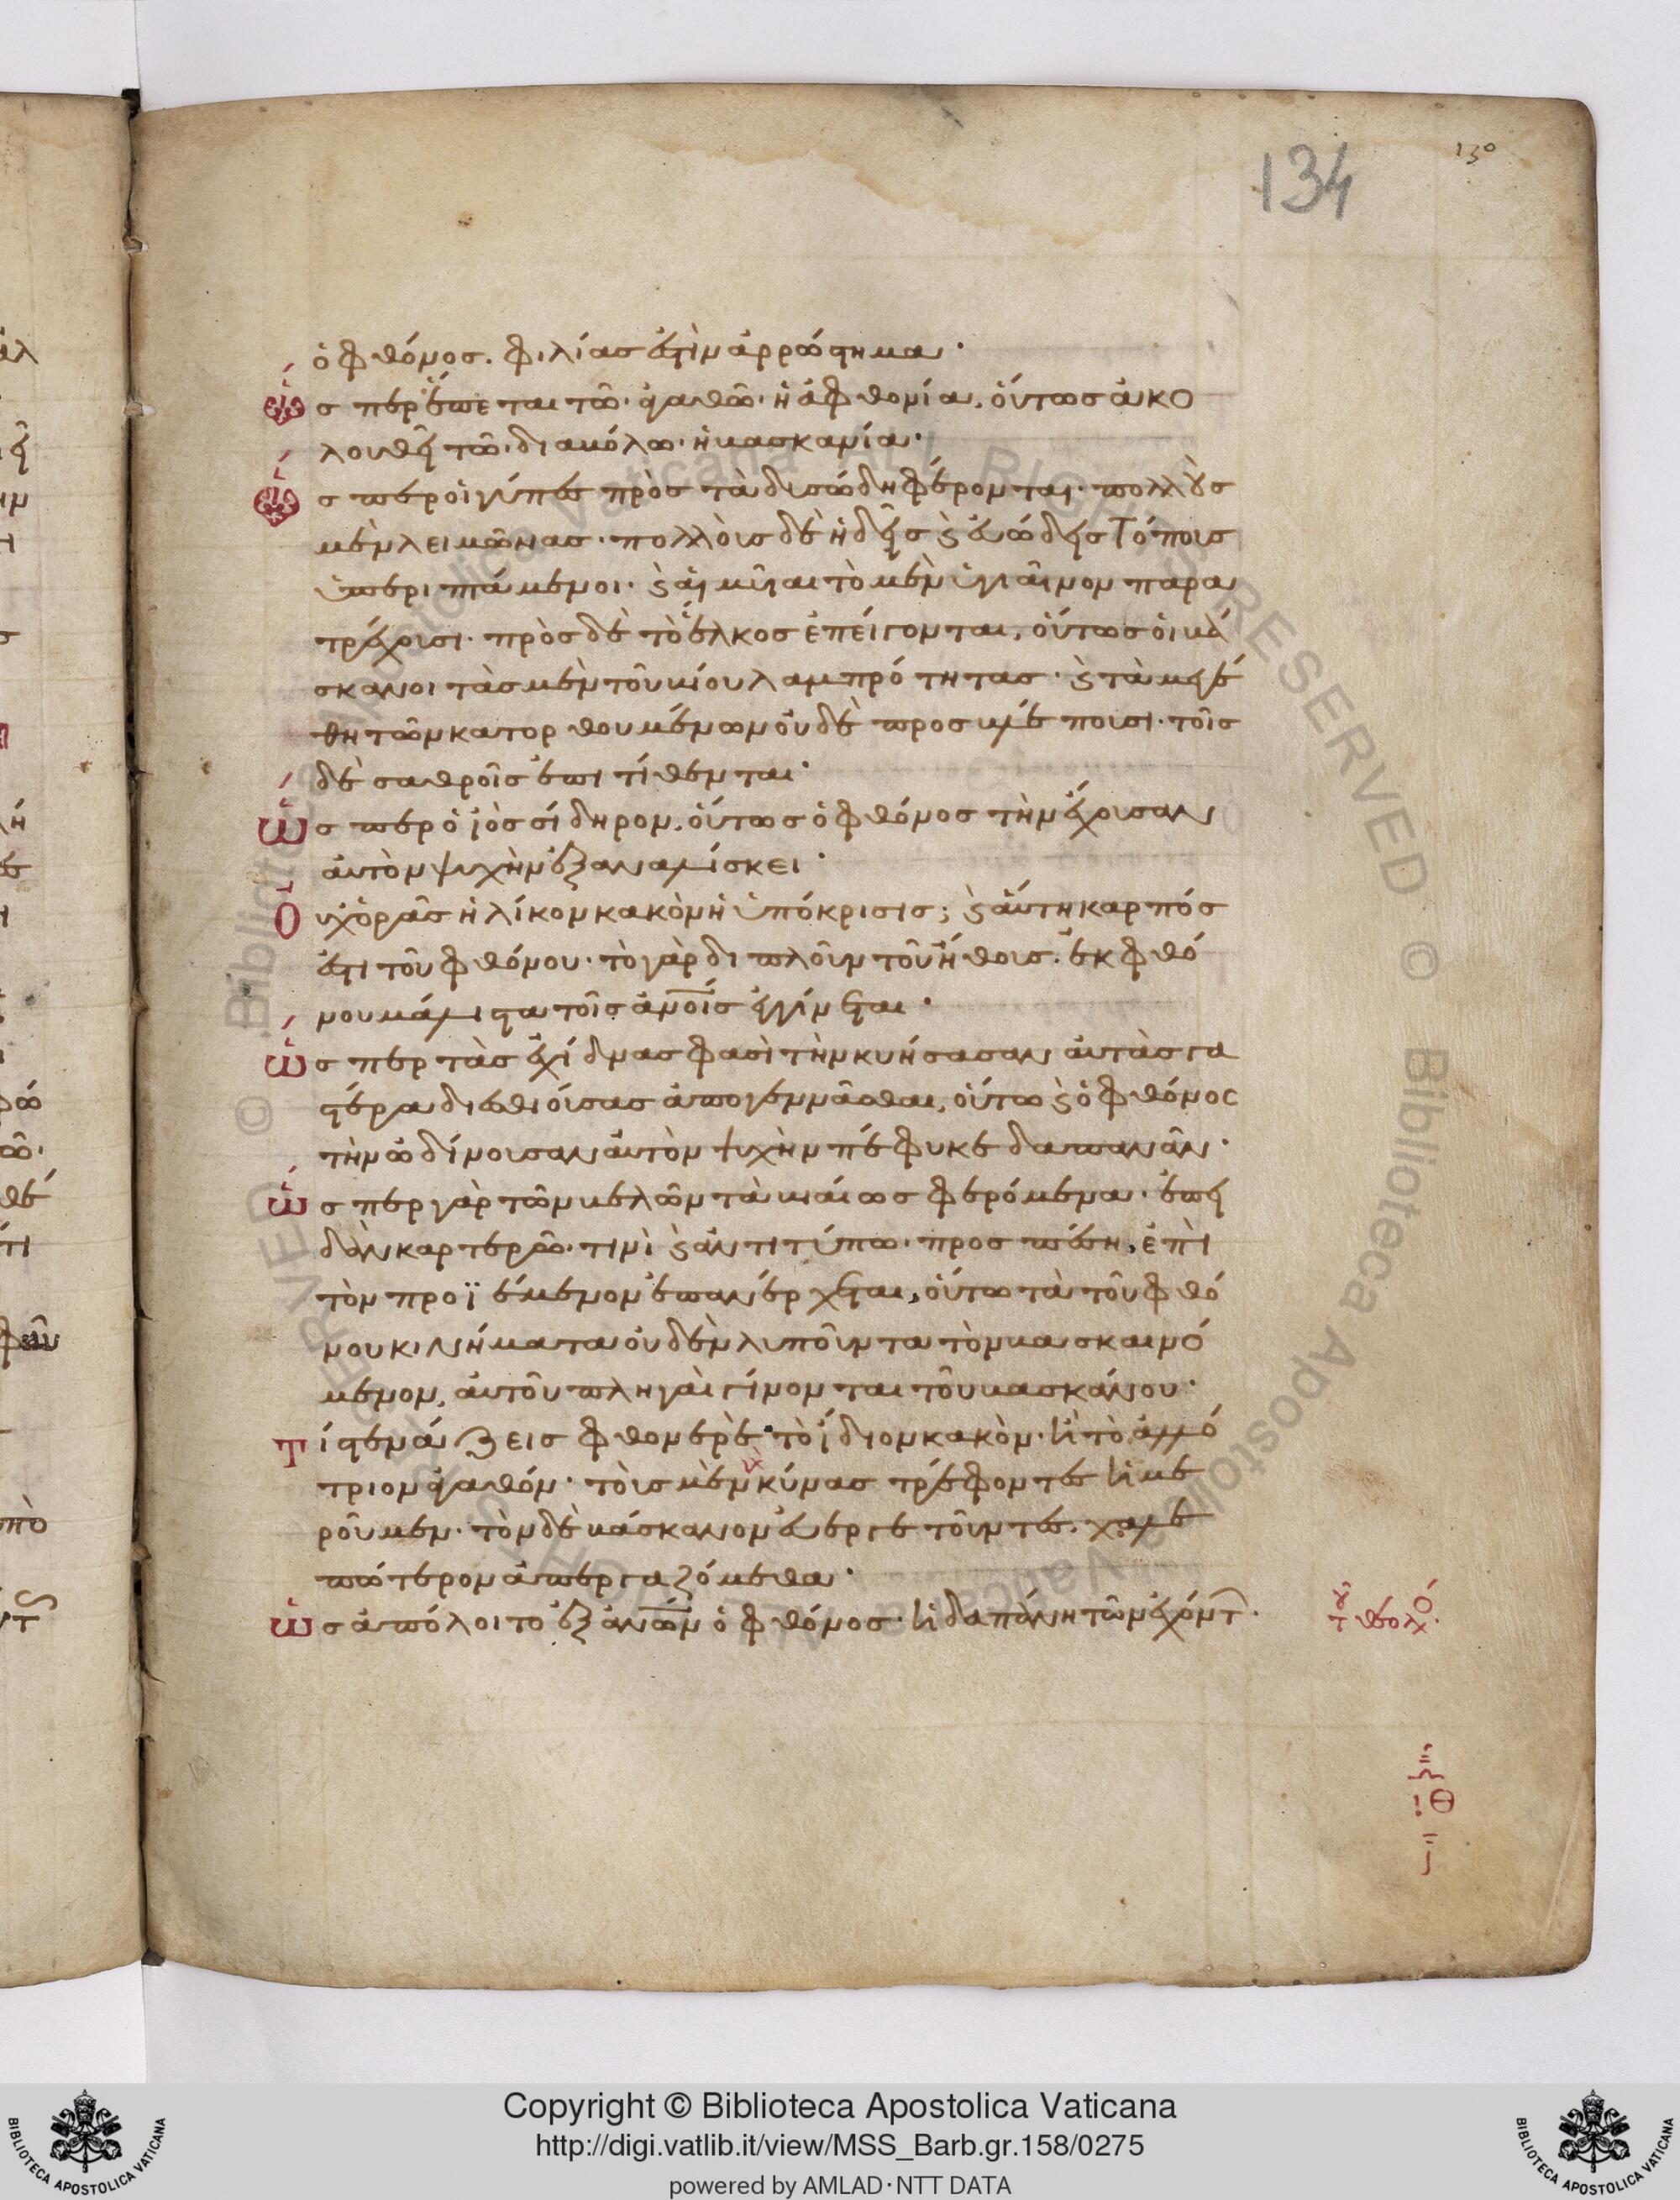 134
130
ὁ φθόνος. φιλίας ἐστὶν ἀρρώστημα·
Ὥσπερ ἕπεται τῶ ἀγαθῶ ἡ ἀφθονία, οὕτως ἀκο
λουθεῖ τῶ διαβόλω ἡ βασκανία·
Ὥσπερ οἱ γύπες πρὸς τὰ δυσώδη φέρονται· πολλοὺς
μὲν λειμῶνας· πολλοὺς δὲ ἡδεῖς καὶ εὐώδεις τόπους
ὑπεριπτάμενοι· καὶ αἱ μυῖαι τὸ μὲν ὑγιαῖνον παρα
τρέχουσι· πρὸς δὲ τὸ ἕλκος ἐπείγονται, οὕτως οἱ βά
σκανοι τὰς μὲν τοῦ βίου λαμπρότητας· καὶ τὰ μεγέ
θη τῶν κατορθουμένων οὐδὲ προσβλέπουσι· τοῖς
δὲ σαθροῖς ἐπιτίθενται·
Ὥσπερ ὁ ἰὸς σίδηρον, οὕτως ὁ φθόνος τὴν ἔχουσαν
αὐτὸν ψυχὴν ἐξαναλίσκει·
Οὐχ ὁρᾶς ἡλίκον κακὸν ἡ ὑπόκρισις; καὶ αὕτη καρπός
ἐστι τοῦ φθόνου· τὸ γὰρ διπλοῦν τοῦ ἤθους. ἐκ φθό
νου μάλιστα τοῖς ἀνοις ἐγγίνεται·
Ὥσπερ τὰς ἐχίδνας φασὶ τὴν κυήσασαν αὐτὰς γα
στέρα διεσθιούσας ἀπογεννᾶσθαι, οὕτω καὶ ὁ φθόνος
τὴν ὠδίνουσαν αὐτὸν ψυχὴν πέφυκε δαπανᾶν·
Ὥσπερ γὰρ τῶν βελῶν τὰ βιαίως φερόμενα· ἐπει
δὰν καρτερῶ τινὶ καὶ ἀντιτύπω προσπέση, ἐπὶ
τὸν προϊέμενον ἐπανέρχεται, οὕτω τὰ τοῦ φθό
νου κινήματα οὐδὲν λυποῦντα τὸν βασκαινό
μενον, αὐτοῦ πληγαὶ γίνονται τοῦ βασκάνου·
Τί στενάζεις φθονερὲ τὸ ἴδιον κακὸν· ἢ τὸ ἀλλό
τριον ἀγαθόν· τοὺς μὲν κύνας τρέφοντες ἡμε
ροῦμεν· τὸν δὲ βάσκανον εὐεργετοῦντες. χαλε
πώτερον ἀπεργαζόμεθα·
Ὡς ἀπόλοιτο ἐξ ἀνων ὁ φθόνος· ἡ δαπάνη τῶν ἐχόντ·
τοῦ θεολό